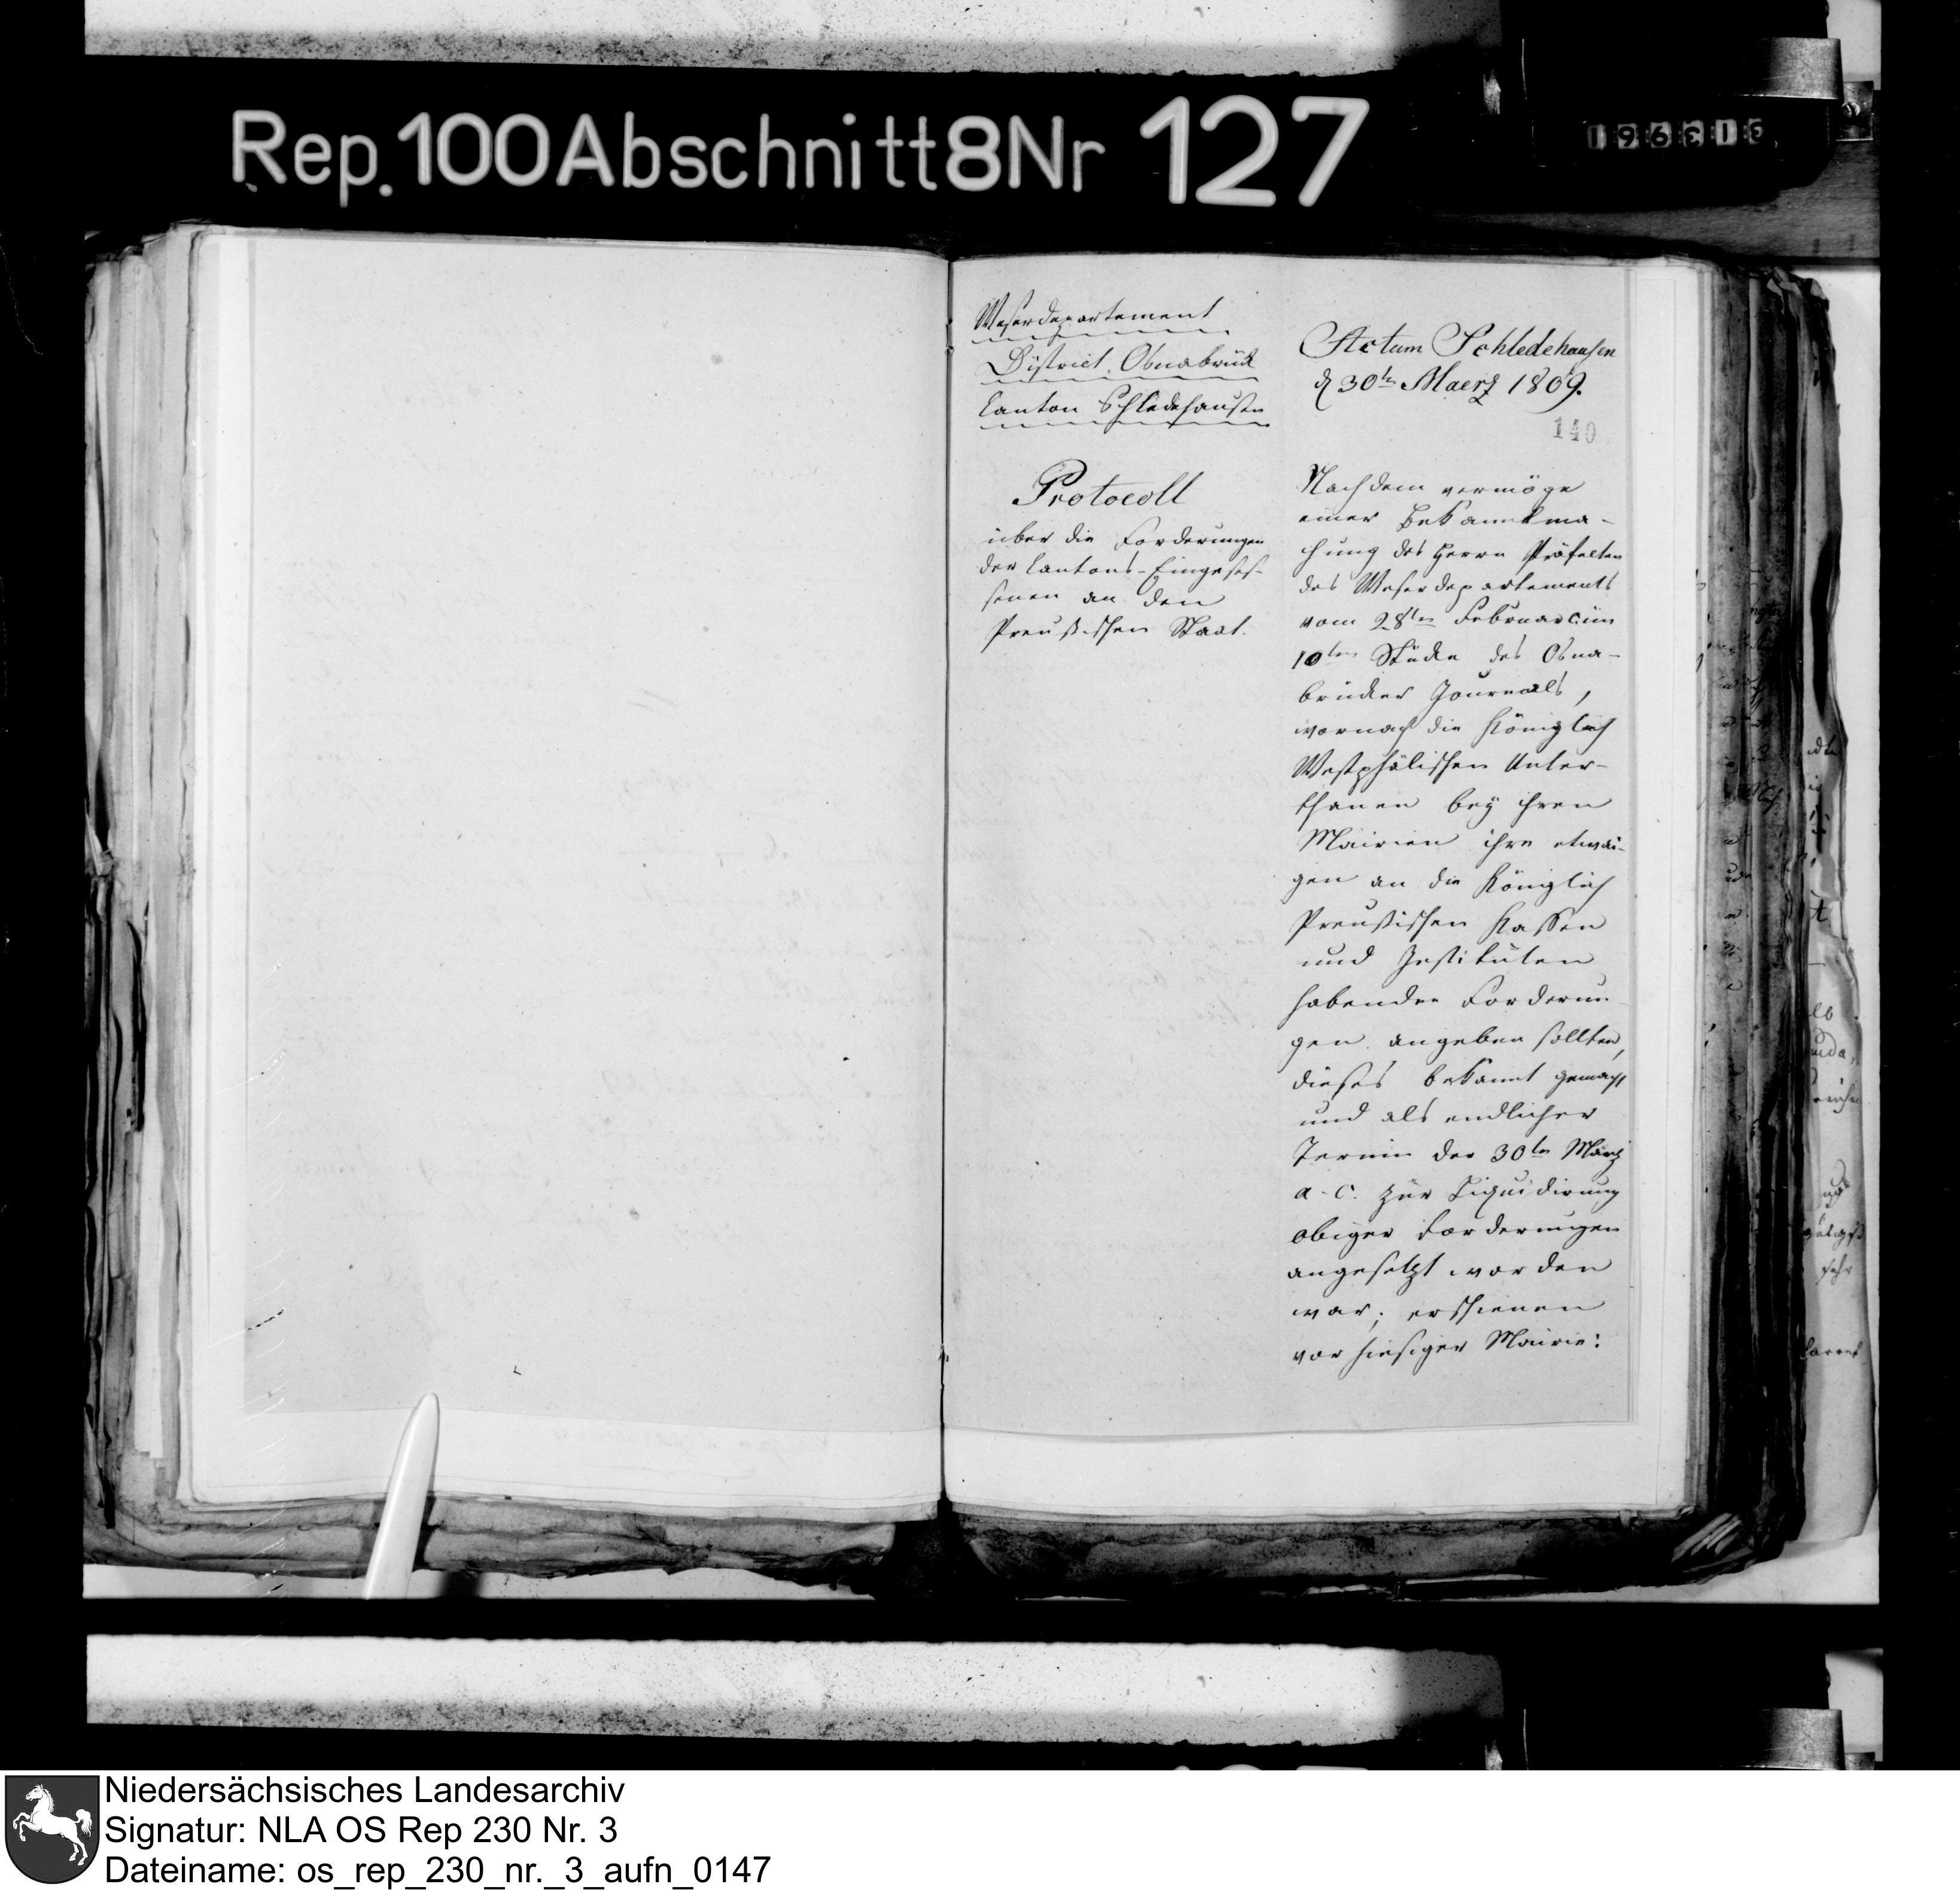 Rep. 100 Abschnitt 8 Nr 127
Weserdepartement
District Osnabrück
Canton Schledehausen
Protocoll
über die Forderungen
der Cantons-Eingeses-
senen an den
Preußischen Staat.
Actum Schledehausen
d 30ten Maerz 1809.
140
Nachdem vermöge
einer Bekanntma-
chung des Herrn Präfekten
des Weserdepartements
vom 28ten Februar c. im
10ten Stücke des Osna-
brücker Journals,
wornach die Königlich
Westphälischen Unter-
thanen bey ihren
Mairien ihre etwai-
gen an die Königlich
Preußischen Kassen
und Institüten
habenden Forderun-
gen angeben sollten,
dieses bekannt gemacht
und als endlicher
Termin der 30ten März
a. c. zur Liquidirung
obiger Forderungen
angesetzt worden
war; erschienen
vor hiesiger Mairie:
Niedersächsisches Landesarchiv
Signatur: NLA OS Rep 230 Nr. 3
Dateiname: os_rep_230_nr._3_aufn_0147